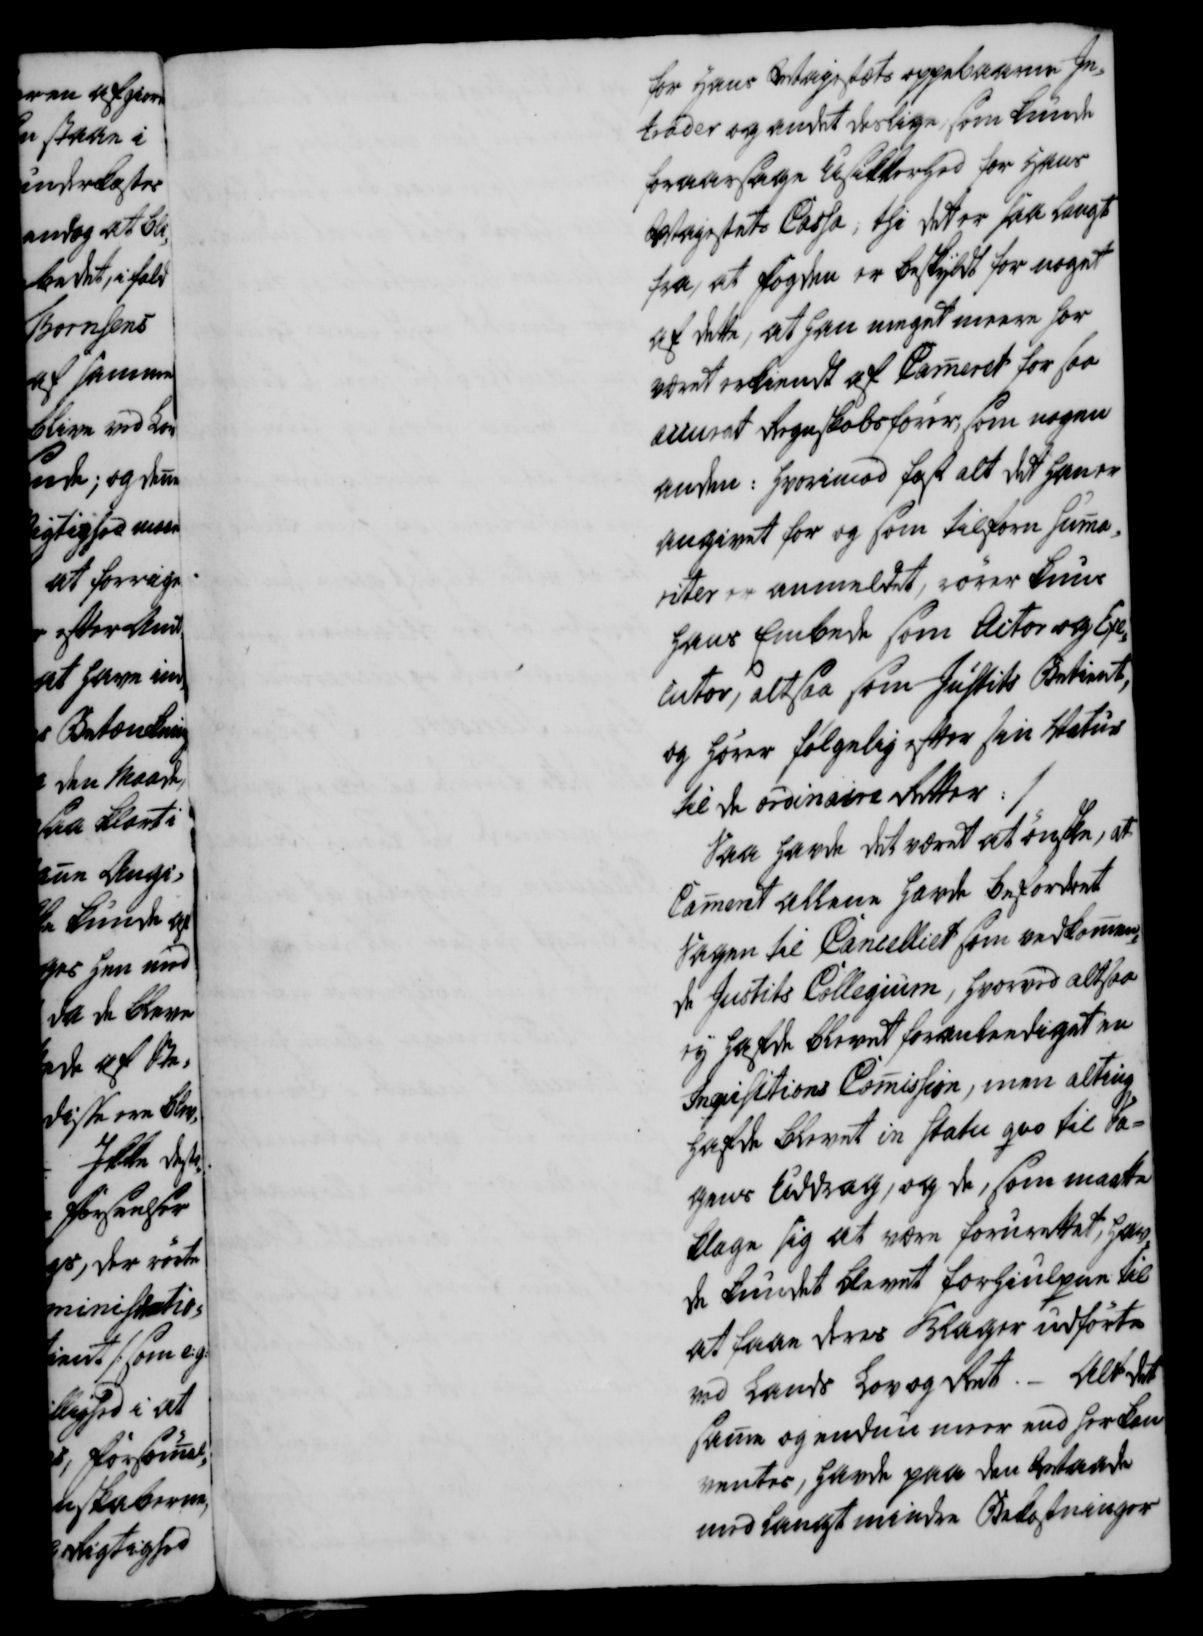 ren afgiør
n staae i
underkastes
endog at bli,
bedet, ifald
Bornsens
af samme
blive ved Lov
ende; og denne
rigtighed maae
at forrige
r efter Amt,
at have ind,
s Betænkning
e den Maade,
saa klart i
aüe Angi,
le kunde af
ges hen mod
da de bleve
ede af Ste,
disse ere blev,
Ikke desto,
e forseelser
gs, der rörte
ministratio,
ient /: som e:g:
illighed i at
s, forsømel,
nskaberne,
e Rigtighed
for Hans Majestets oppebaarne In,
trader og andet deslige, som kunde
foraarsage Usikkerhed for Hans
Majestets Cassa; thi det er saa langt
fra, at fogden er beskyldt for noget
af dette, at han meget meere har
været erkiendt af Cam̄eret for saa
accurat Regnskabsfører, som nogen
anden: hvorimod fast alt det han er
angivet for og som tilforn sum̄a,
riter er anmeldet, rörer kuns
Hans Embede som Actor og Exe,
cutor, altsaa som Justits Betient,
og hörer følgelig efter sin Natur
til de ordinaire Retter: /
Saa havde det været at önske, at
Cam̄eret allene havde befordret
Sagen til Cancelliet som vedkom̄en,
de Justits Collegium, hvorved altsaa
ey hafde blevet foranlediget en
Inqvisitions Com̄ission, men alting
hafde blevet in statu qvo til Sa=
gens Uddrag, og de, som maatte
klage sig at være foruretted, hav,
de kundet blevet forhiulpne til
at faae deres Klager udførte
ved Lands Lov og Ret. – Alt det
sam̄e og endnu meer end her kan
ventes, havde paa den Maade
med langt mindre Bekostninger